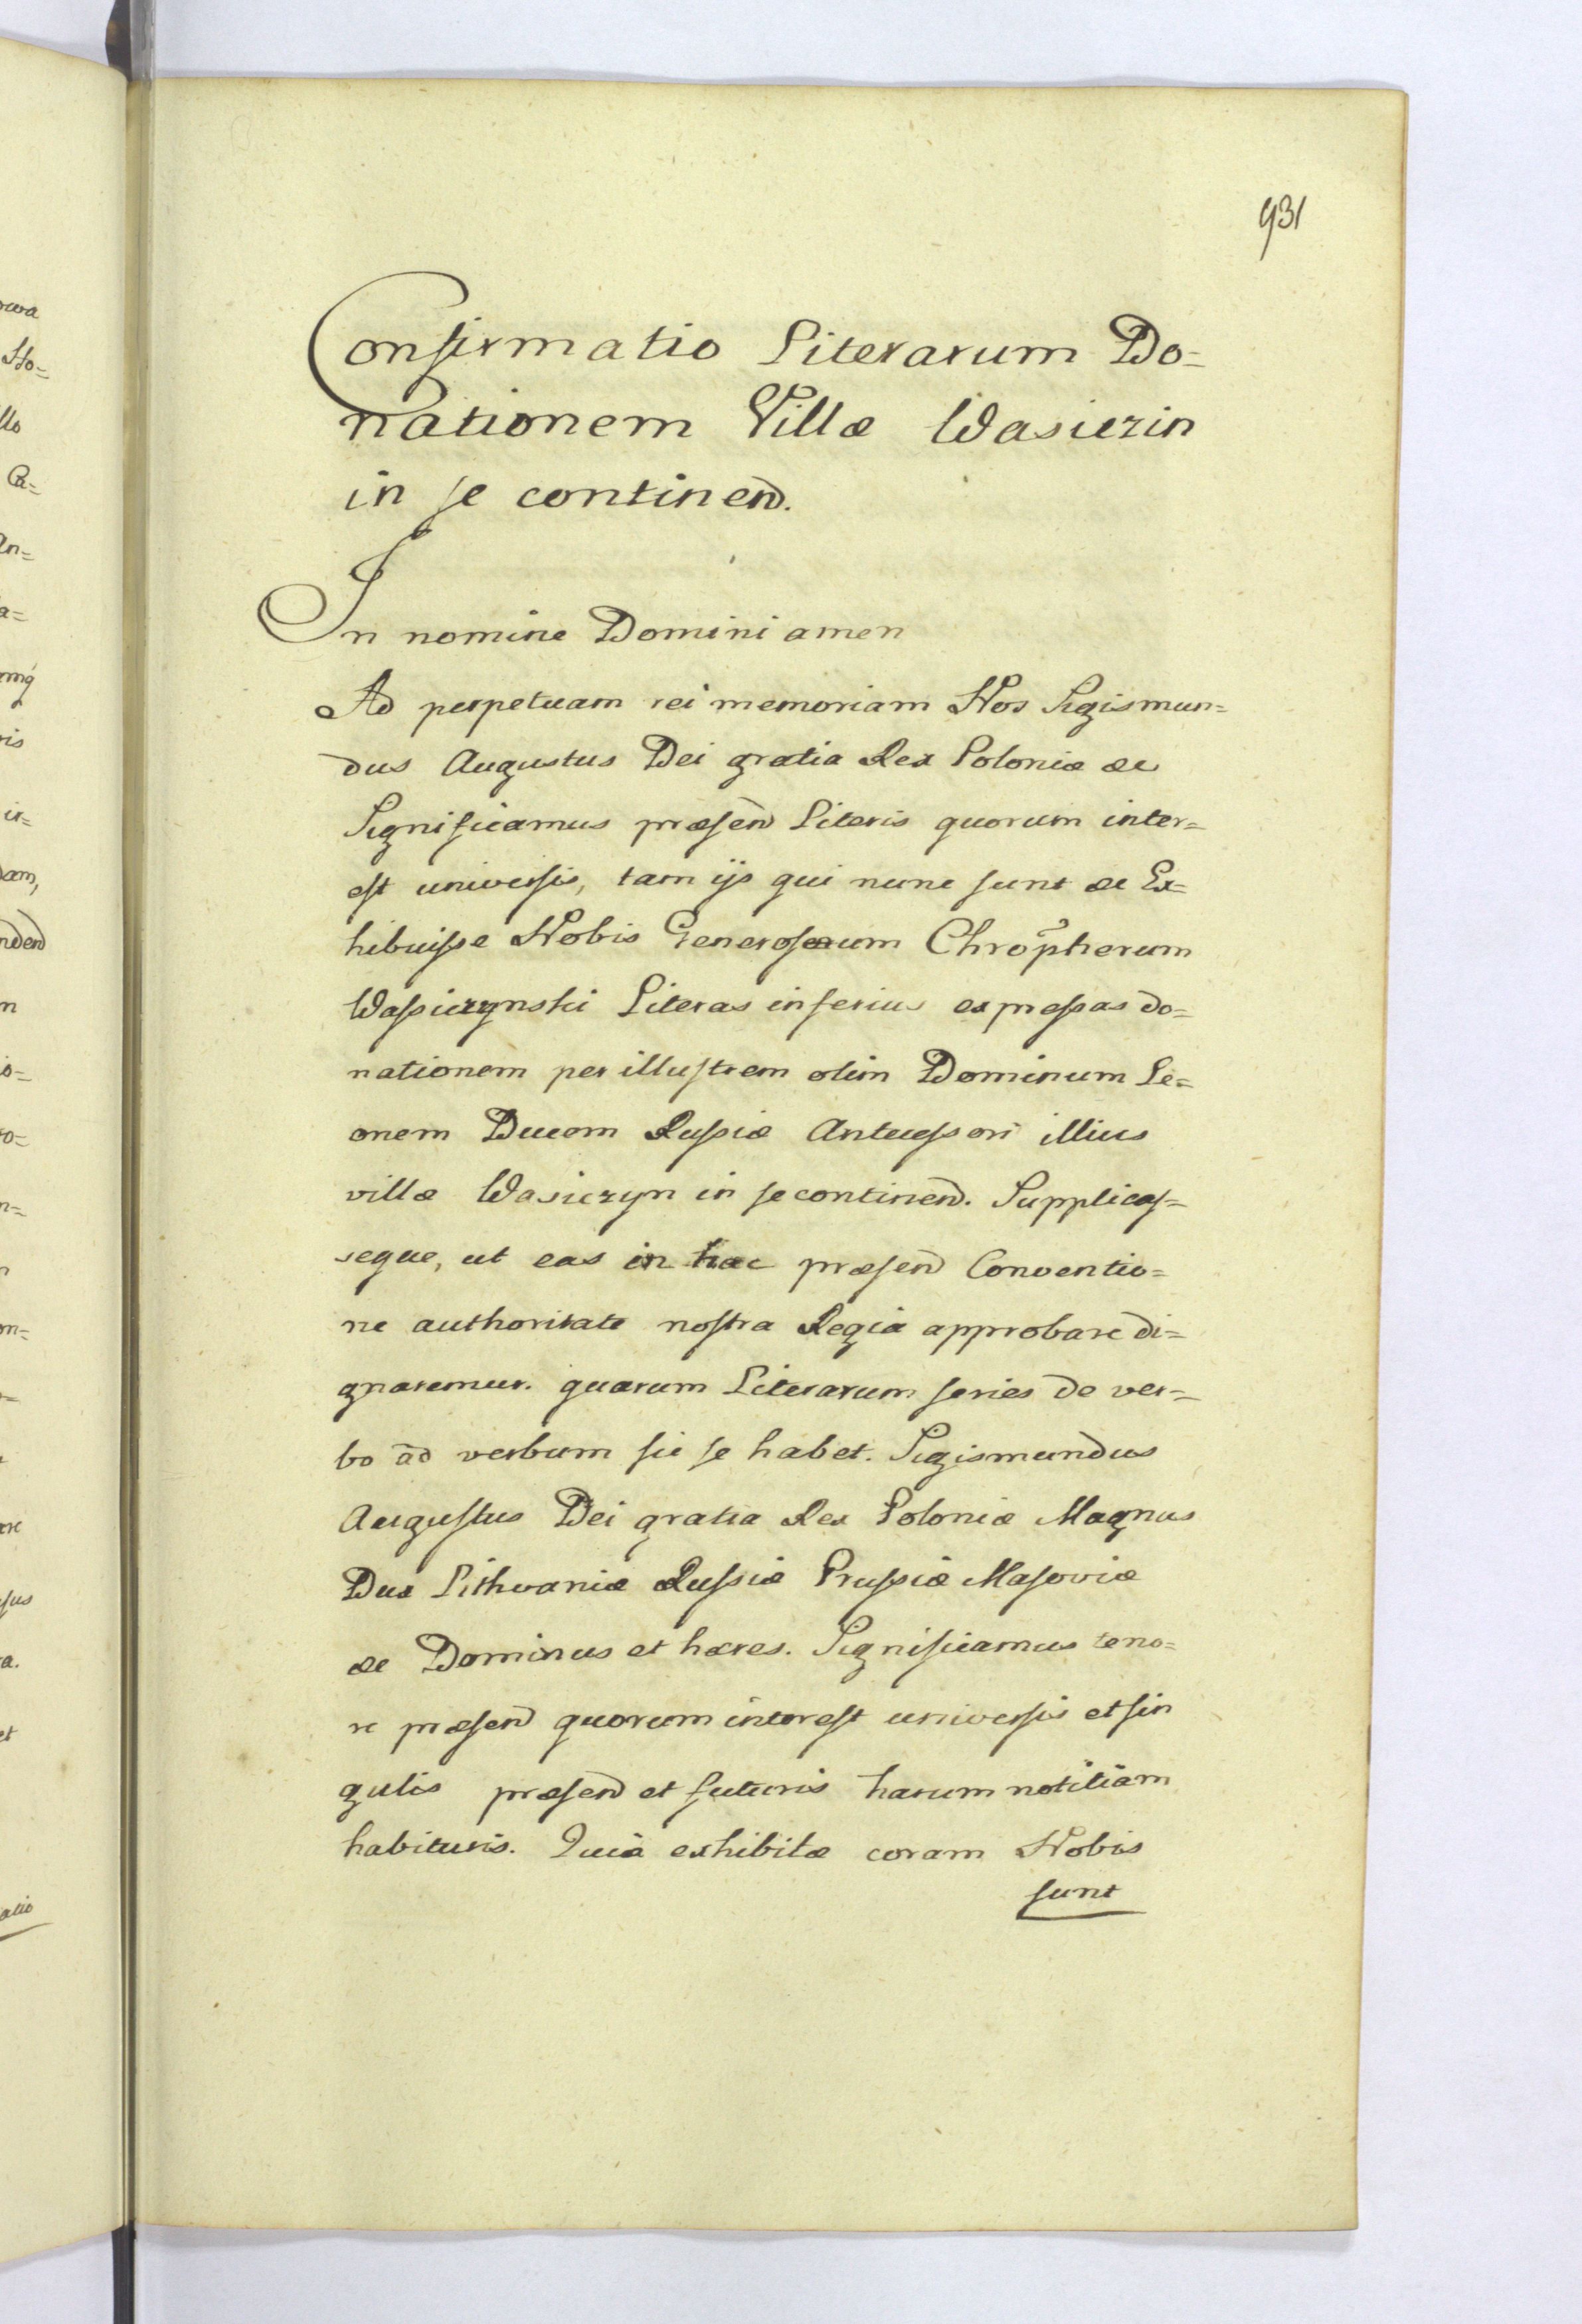 931
Confirmatio Literarum Do=
nationem Villæ Wasiczin
in se continend.
In nomine Domini amen
Ad perpetuam rei memoriam Nos Sigismun=
dus Augustus Dei gratia Rex Poloniæ &c
Significamus præsend Literis quorum inter=
est universis, tam ijs qui nunc sunt &c Ex=
hibuisse Nobis Generosum Chrop̃herum
Wassiczynski Literas inferius expressas do=
nationem per illustrem olim Dominum Le=
onem Ducem Russiæ Antecessori illius
villæ Wasiczyn in se continend. Supplicas=
seque, ut eas in hac præsend Conventio=
ne authoritate nostra Regia approbare di=
gnaremur. quarum Literarum series de ver=
bo ad verbum sic se habet. Sigismundus
Augustus Dei gratia Rex Poloniæ Magnus
Dux Lithvaniæ Russiæ Prussiæ Masoviæ
&c Dominus et hæres. Significamus teno=
re præsend quorum interest universis et sin
gulis præsend et futuris harum notitiam
habituris. Quia exhibitæ coram Nobis
sunt